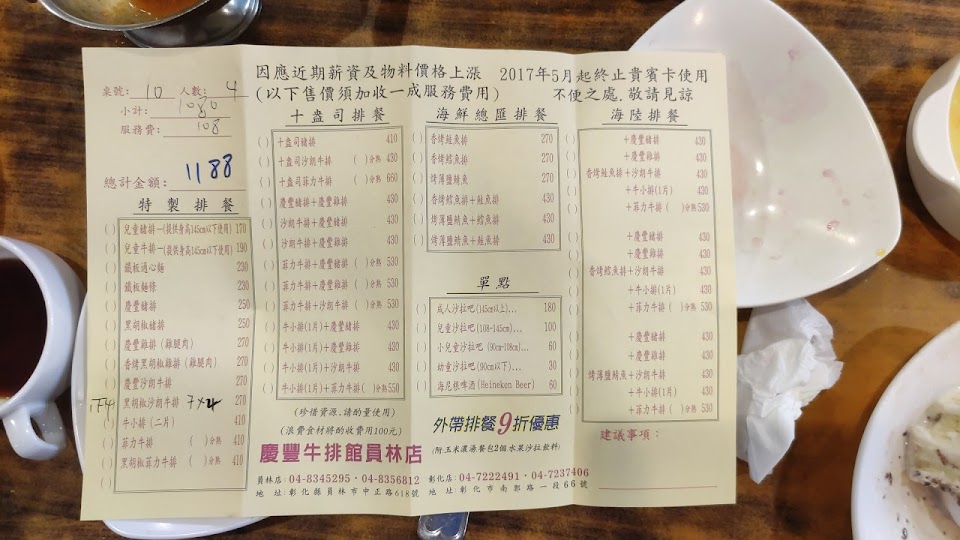 因應近期薪資及物料價格上漲 2017年5月起終止貴賓卡使用
(以下售價須加收一成服務費用) 不便之處,敬請見諒
桌號: 10 人數: 4
小計: 1080
服務費: 108
總計金額: 1188
特製排餐
( ) 兒童豬排—(提供身高145cm以下使用) 170
( ) 兒童牛排—(提供身高145cm以下使用) 190
( ) 鐵板通心麵 230
( ) 鐵板麵條 230
( ) 慶豐豬排 250
( ) 黑胡椒豬排 250
( ) 慶豐雞排 (雞腿肉) 270
( ) 香烤黑胡椒雞排 (雞腿肉) 270
( ) 慶豐沙朗牛排 270
黑胡椒沙朗牛排 7×4 270
( ) 牛小排 (二片) 410
( ) 菲力牛排 ( )分熟 410
( ) 黑胡椒菲力牛排 ( )分熟 410
( )
十盎司排餐
( ) 十盎司豬排 410
( ) 十盎司沙朗牛排 ( )分熟 430
( ) 十盎司菲力牛排 ( )分熟 660
( ) 慶豐豬排+慶豐雞排 430
( ) 沙朗牛排+慶豐豬排 430
( ) 沙朗牛排+慶豐雞排 430
( ) 菲力牛排+慶豐豬排 ( )分熟 530
( ) 菲力牛排+慶豐雞排 ( )分熟 530
( ) 菲力牛排+沙朗牛排 ( )分熟 530
( ) 牛小排(1片)+慶豐豬排 430
( ) 牛小排(1片)+慶豐雞排 430
( ) 牛小排(1片)+沙朗牛排 430
( ) 牛小排(1片)+菲力牛排( )分熟 550
(珍惜資源,請酌量使用)
(浪費食材將酌收費用100元)
海鮮總匯排餐
( ) 香烤鮭魚排 270
( ) 香烤鱈魚排 270
( ) 烤薄鹽鯖魚 270
( ) 香烤鱈魚排+鮭魚排 430
( ) 烤薄鹽鯖魚+鱈魚排 430
( ) 烤薄鹽鯖魚+鮭魚排 430
單點
( ) 成人沙拉吧(145cm以上)... 180
( ) 兒童沙拉吧(108-145cm)... 100
( ) 小兒童沙拉吧 (90cm-108cm)... 60
( ) 幼童沙拉吧(90cm以下)... 30
( ) 海尼根啤酒(Heineken Beer) 60
外帶排餐9折優惠
(附玉米濃湯餐包2個水果沙拉飲料)
海陸排餐
( ) +慶豐豬排 430
( ) +慶豐雞排 430
( ) 香烤鮭魚排+沙朗牛排 430
( ) +牛小排(1片) 430
( ) +菲力牛排 ( )分熟530
( ) +慶豐豬排 430
( ) +慶豐雞排 430
( ) 香烤鱈魚排+沙朗牛排 430
( ) +牛小排(1片) 430
( ) +菲力牛排 ( )分熟 530
( ) +慶豐豬排 430
( ) +慶豐雞排 430
( ) 烤薄鹽鯖魚+沙朗牛排 430
( ) +牛小排(1片) 430
( ) +菲力牛排 ( )分熟 530
建議事項:
慶豐牛排館員林店
員林店: 04-8345295・04-8356812 彰化店: 04-7222491・04-7237406
地 址:彰化縣員林市中正路618號 地 址:彰化市南郭路一段66號